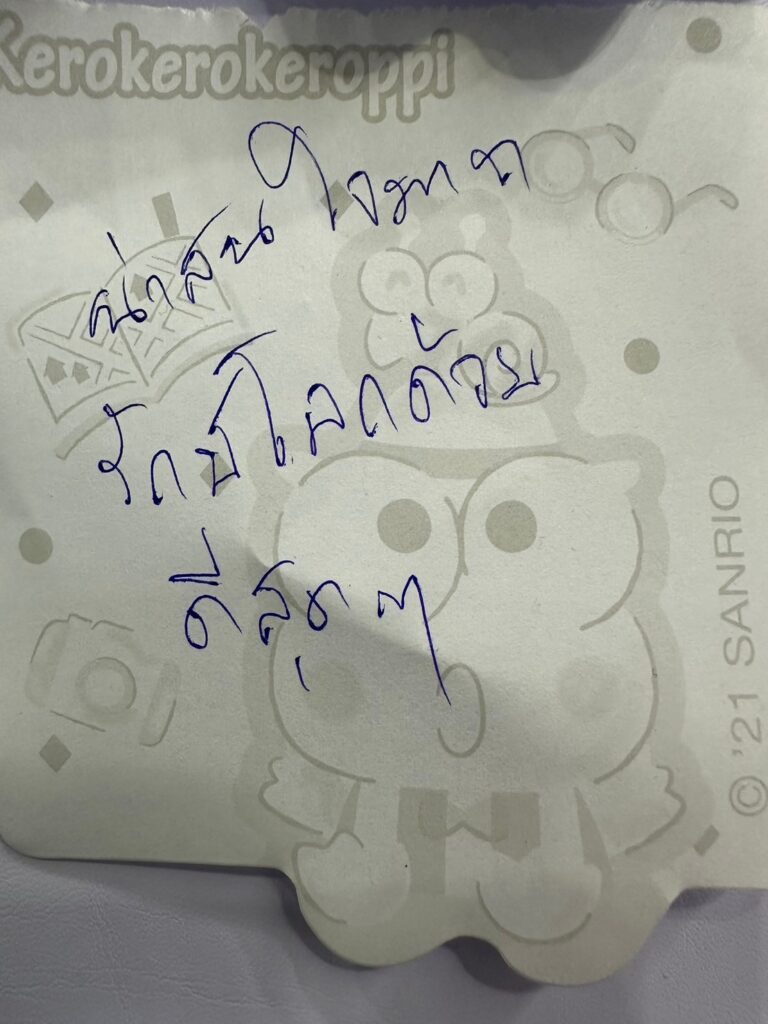 Kerokerokeroppi
น่าสนใจมาก
รักษ์โลกด้วย
ดีสุดๆ
© '21 SANRIO